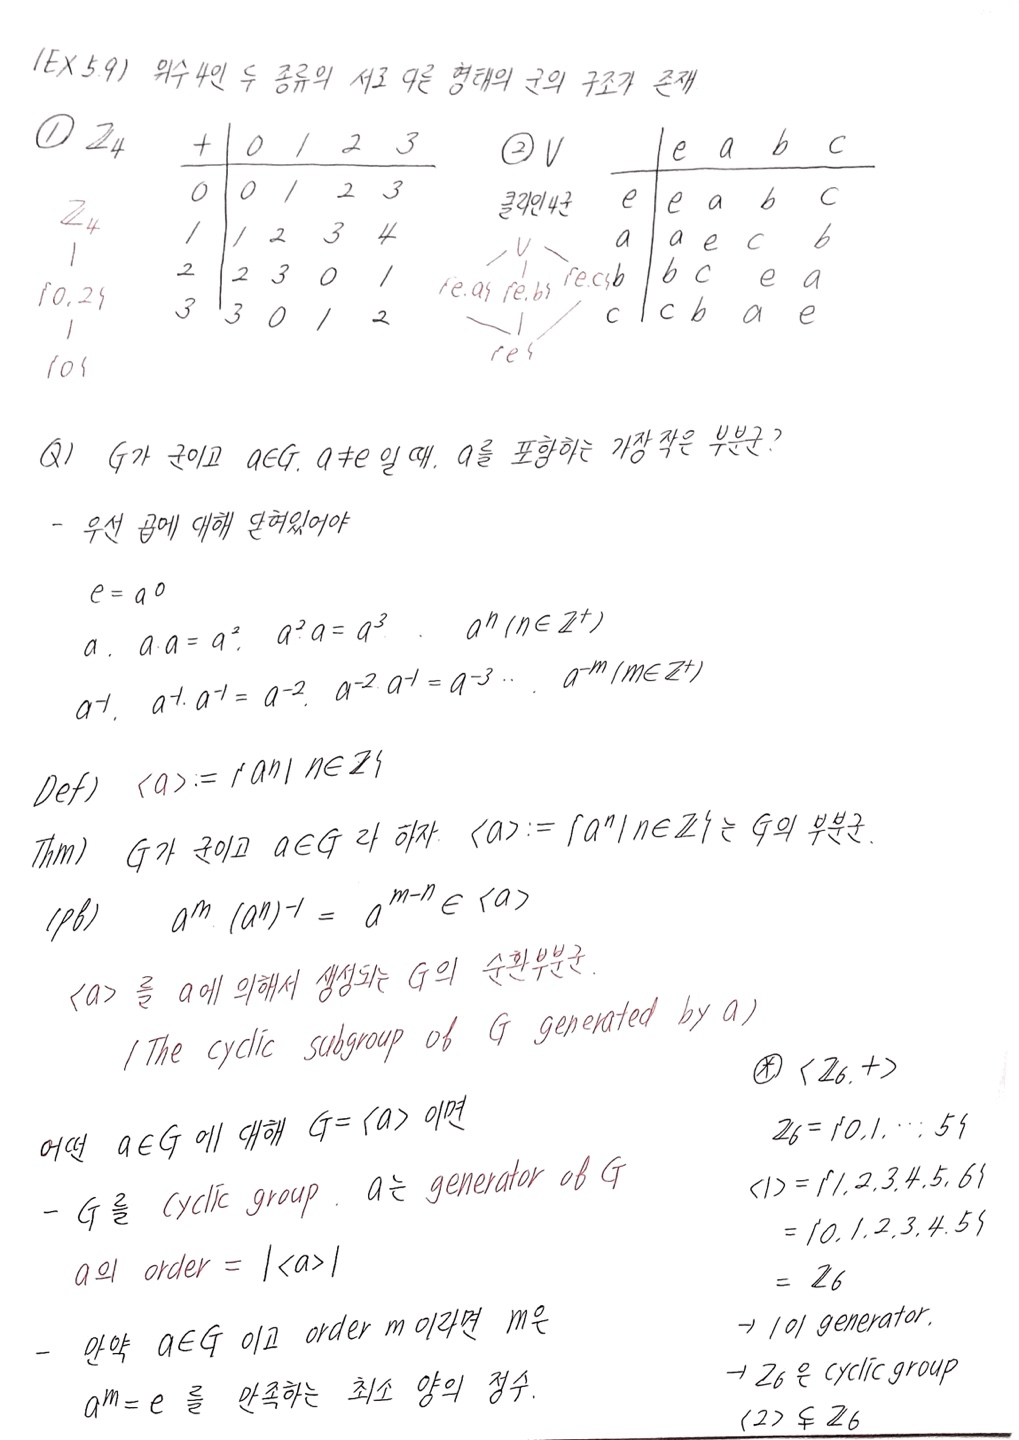 (EX 5.9) 위수 4인 두 종류의 서로 다른 형태의 군의 구조가 존재
① ℤ4
+ | 0 1 2 3
0 | 0 1 2 3
1 | 1 2 3 4
2 | 2 3 0 1
3 | 3 0 1 2
ℤ4
|
{0,2}
|
{0}
② V
클라인 4군
| e a b c
e | e a b c
a | a e c b
b | b c e a
c | c b a e
V
{e,a} {e,b} {e,c}
{e}
Q) G가 군이고 a∈G, a≠e 일 때, a를 포함하는 가장 작은 부분군?
- 우선 곱에 대해 닫혀있어야
e = a⁰
a, a·a = a², a²·a = a³ .. aⁿ (n∈ℤ⁺)
a⁻¹, a⁻¹·a⁻¹ = a⁻², a⁻²·a⁻¹ = a⁻³ ... a⁻ᵐ (m∈ℤ⁺)
Def) <a> := {aⁿ | n∈ℤ}
Thm) G가 군이고 a∈G 라 하자. <a> := {aⁿ | n∈ℤ}는 G의 부분군.
(pf) aᵐ·(aⁿ)⁻¹ = aᵐ⁻ⁿ ∈ <a>
<a> 를 a에 의해서 생성되는 G의 순환부분군.
(The cyclic subgroup of G generated by a)
어떤 a∈G 에 대해 G = <a> 이면
- G를 cyclic group, a는 generator of G
a의 order = |<a>|
- 만약 a∈G 이고 order m 이라면 m은
aᵐ = e 를 만족하는 최소 양의 정수.
⊛ <ℤ6, +>
ℤ6 = {0,1,...,5}
<1> = {1,2,3,4,5,6}
= {0,1,2,3,4,5}
= ℤ6
→ 1이 generator.
→ ℤ6은 cyclic group
<2> ⊊ ℤ6